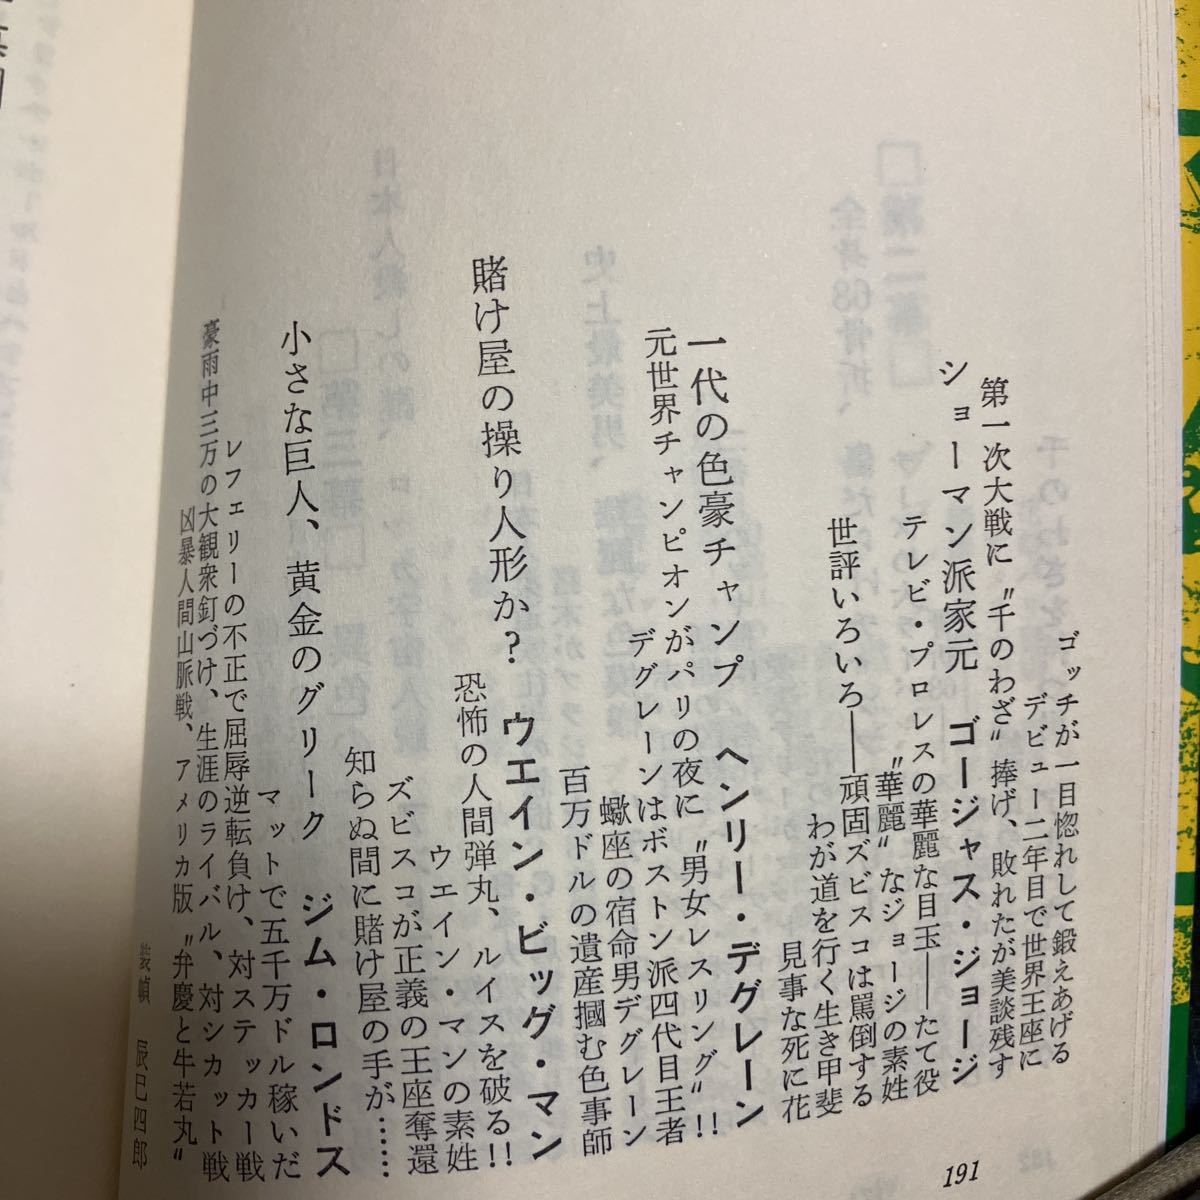 ゴッチが一目惚れして鍛えあげる
デビュー二年目で世界王座に
第一次大戦に〝千のわざ〟捧げ、敗れたが美談残す
ショーマン派家元　ゴージャス・ジョージ
テレビ・プロレスの華麗な目玉——たて役
〝華麗〟なジョージの素姓
世評いろいろ——頑固ズビスコは罵倒する
わが道を行く生き甲斐
見事な死に花
一代の色豪チャンプ　ヘンリー・デグレーン
元世界チャンピオンがパリの夜に〝男女レスリング〟!!
デグレーンはボストン派四代目王者
蠍座の宿命男デグレーン
百万ドルの遺産摑む色事師
賭け屋の操り人形か？　ウエイン・ビッグ・マン
恐怖の人間弾丸、ルイスを破る!!
ウエイン・マンの素姓
ズビスコが正義の王座奪還
知らぬ間に賭け屋の手が……
小さな巨人、黄金のグリーク　ジム・ロンドス
マットで五千万ドル稼いだ
レフェリーの不正で屈辱逆転負け、対ステッカー戦
豪雨中三万の大観衆釘づけ、生涯のライバル、対シカット戦
凶暴人間山脈戦、アメリカ版〝弁慶と牛若丸〟
装幀　辰巳四郎
191